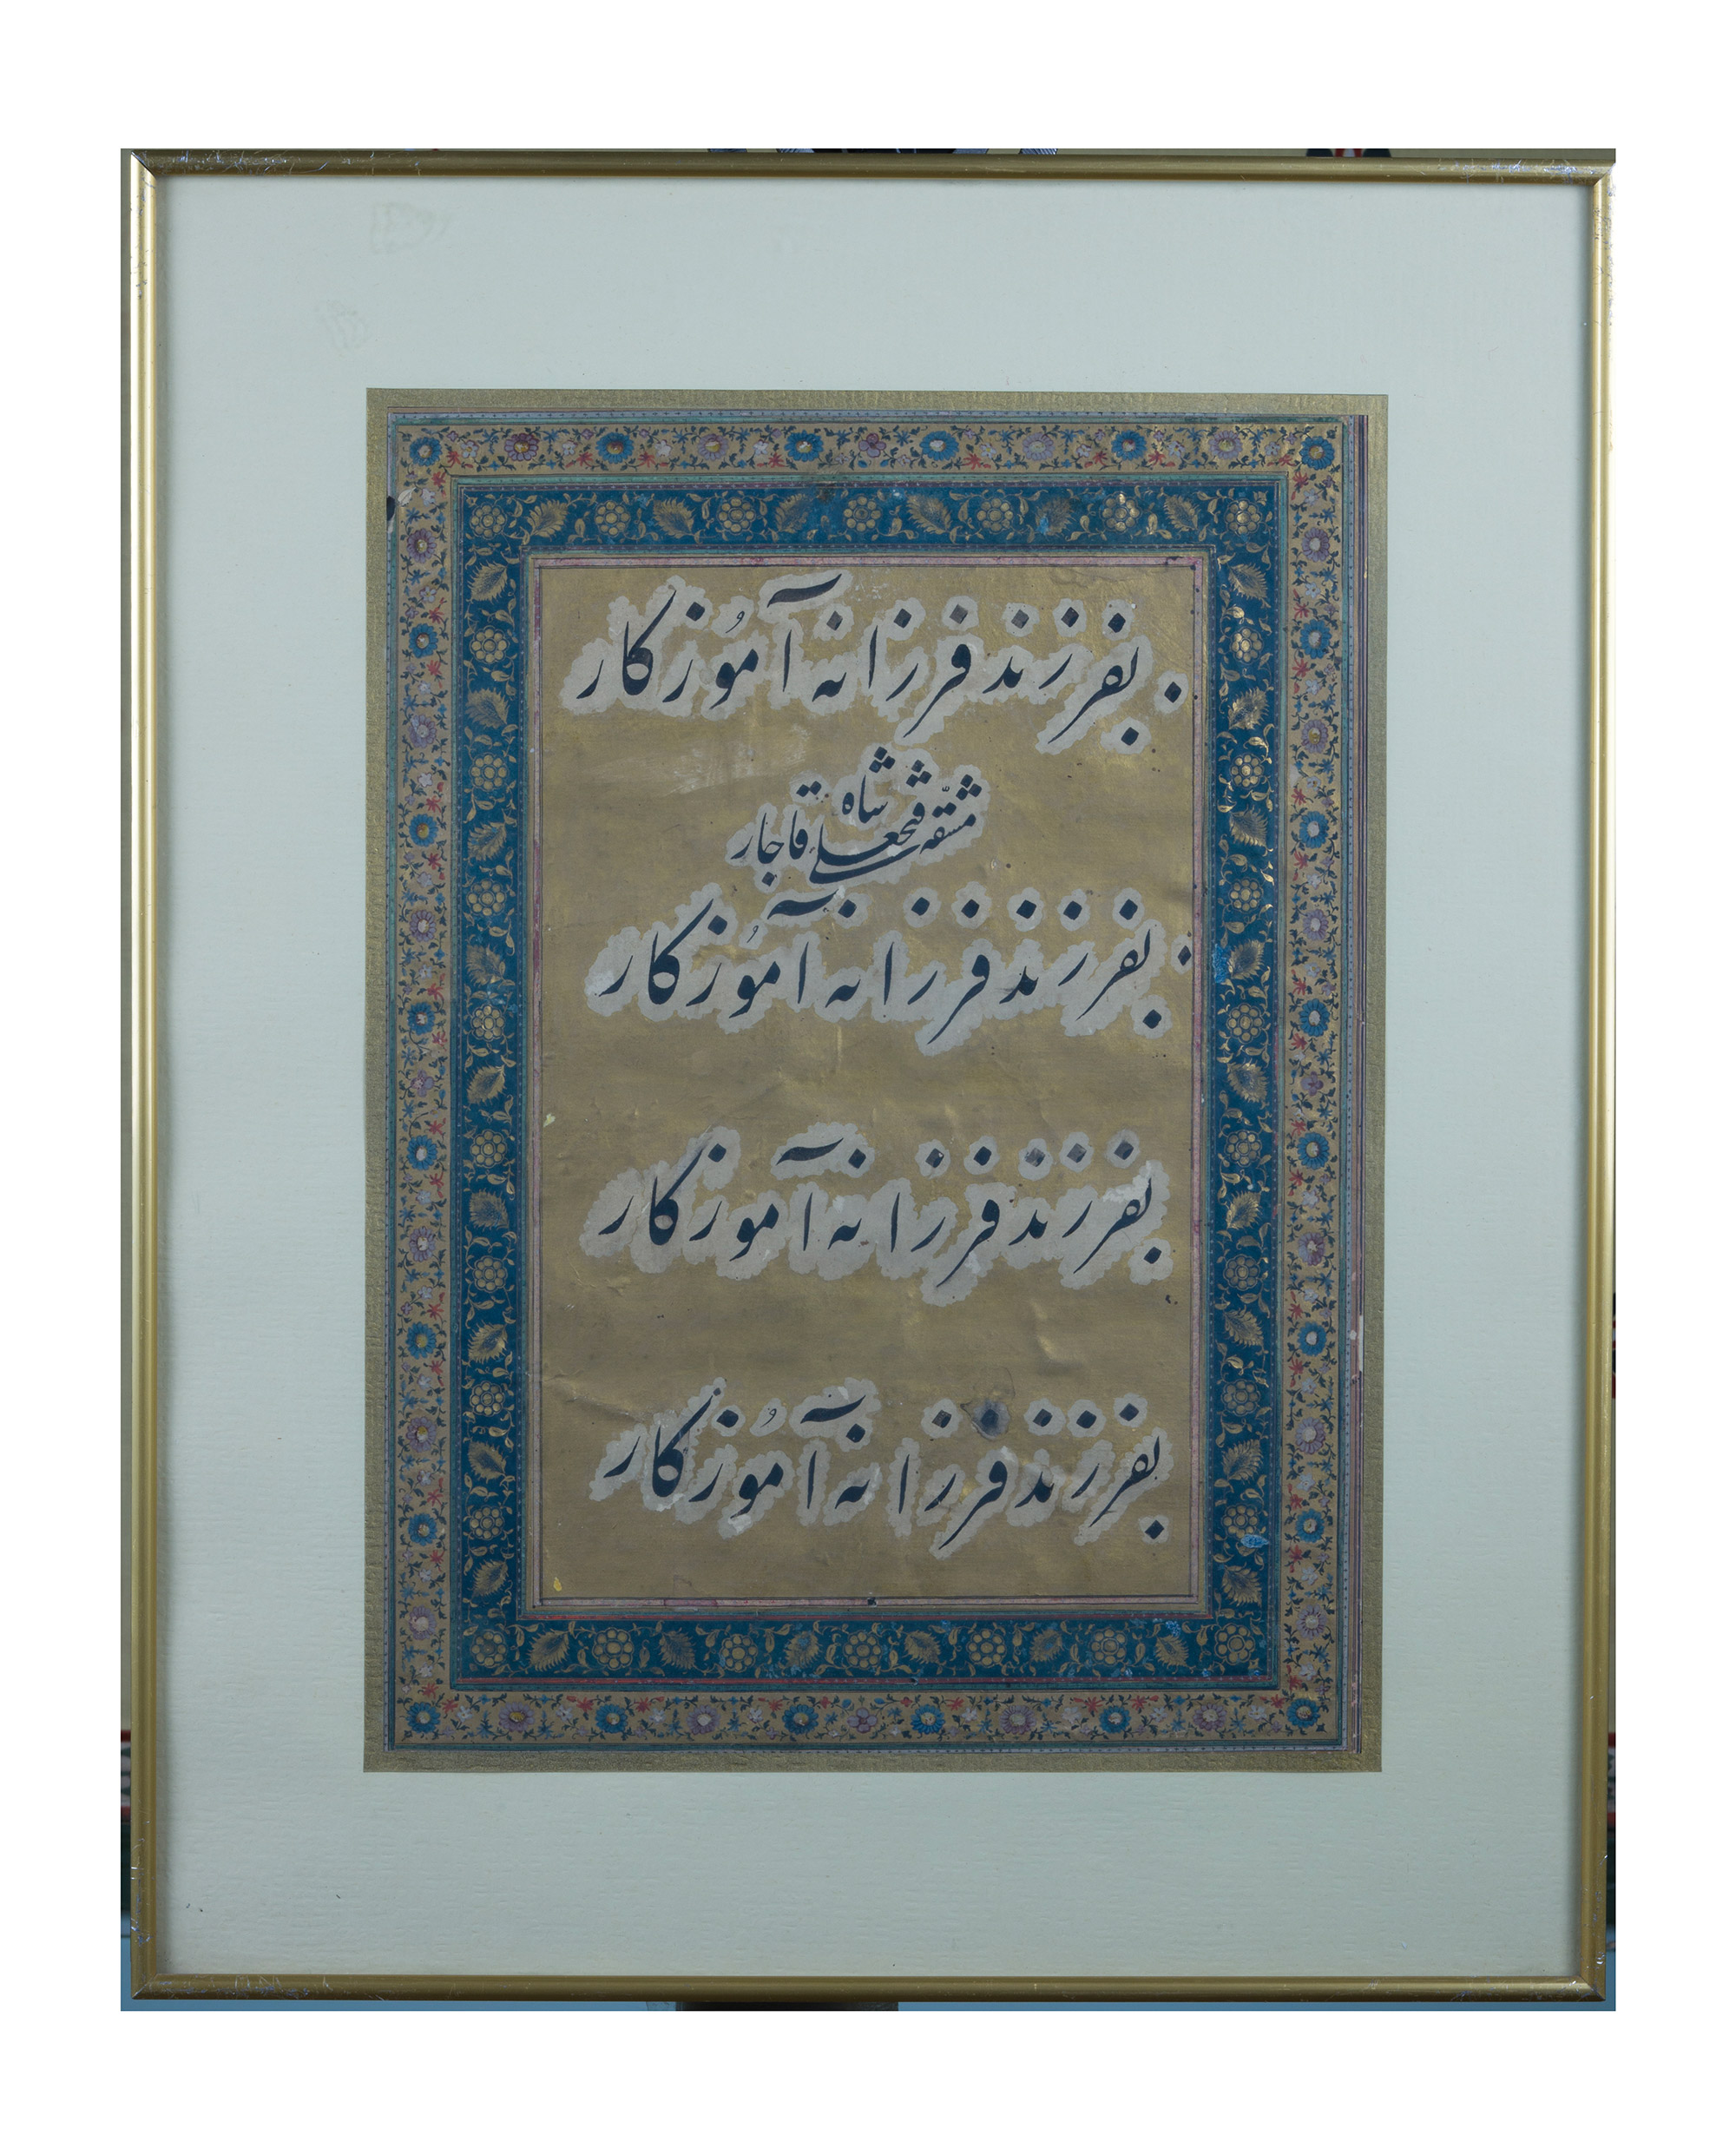 بفرزند فرزانه آمُوز کار
مشّقه فتحعلی شاه قاجار
بفرزند فرزانه آمُوز کار
بفرزند فرزانه آموز کار
بفرزند فرزانه آمُوز کار